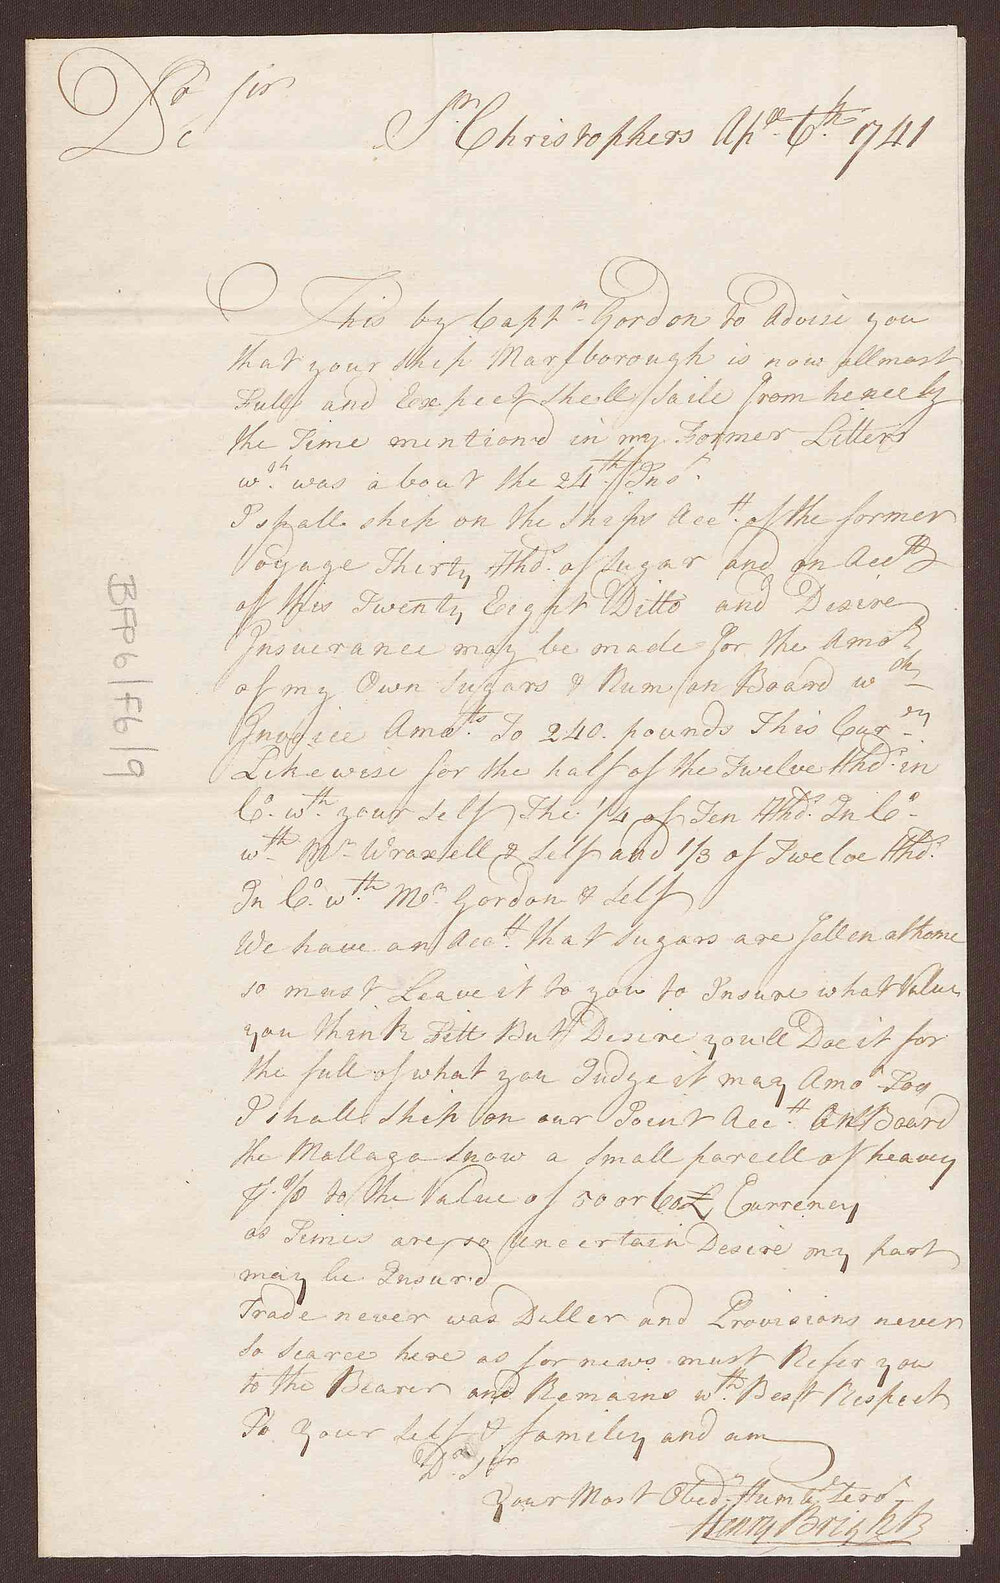 Dr Sir
St Christophers Apl 6th 1741
This by Captn Gordon to Advise you
that your Ship Marlborough is now allmost
Full and Expect Shell Saile from hence by
the Time mentiond in my Former Letters
wch was about the 24th Inst
I shall ship on the Ships Acctt of the former
Voyage Thirty Hhds of Sugar and on Acctt
of this Twenty Eight Ditto and Desire
Insuerance may be made for the Amot
of my Own Sugars & Rum on Board wch
Invoice Amotts To 240 pounds This Curcy
Likewise for the half of the Twelve Hhds in
Co wth your Self The 1/4 of Ten Hhds In Co
wth Mr Wraxell & Self and 1/3 of Twelve Hhds
In Co wth Mr Gordon & Self
We have an Acctt that Sugars are fallen at home
so must Leave it to you to Insure what Value
you think Fitt But Desire you'll Doe it for
the full of what you Judge it may Amot Too
I shall Ship on our Joint Acctt On Board
the Mallaga Snow a Small parcell of heavey
Ps 8/8 to the Value of 50 or 60£ Currency
as Times are so Uncertain Desire my part
may be Insured
Trade never was Duller and Provisions never
So Scarce here as for news must Refer you
to the Bearer and Remains wth Best Respect
To Your Self & familey and am
Dr Sir
Your Most Obedt Humble Servt
Henry Bright
BFP6/F6/9